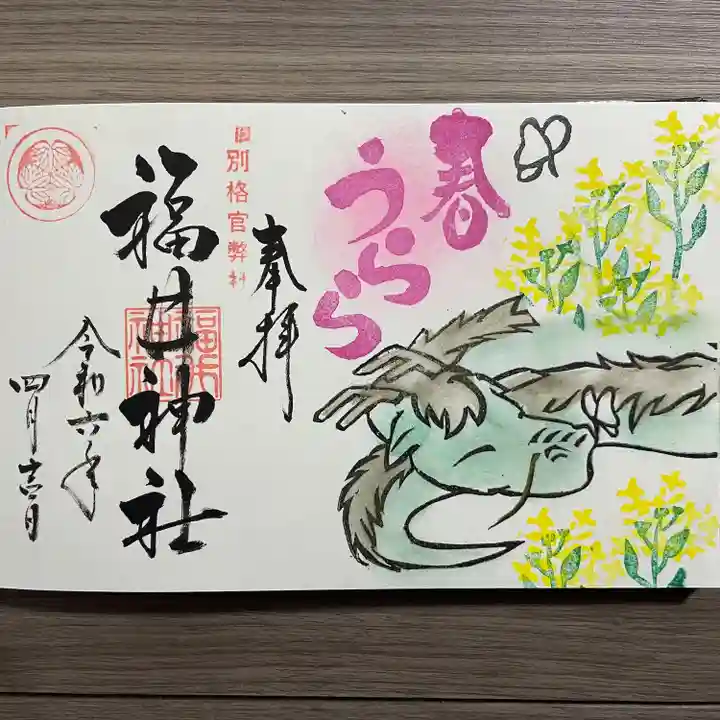 春
うらら
奉拝
別格官幣社
福井神社
福井神社
令和六年
四月